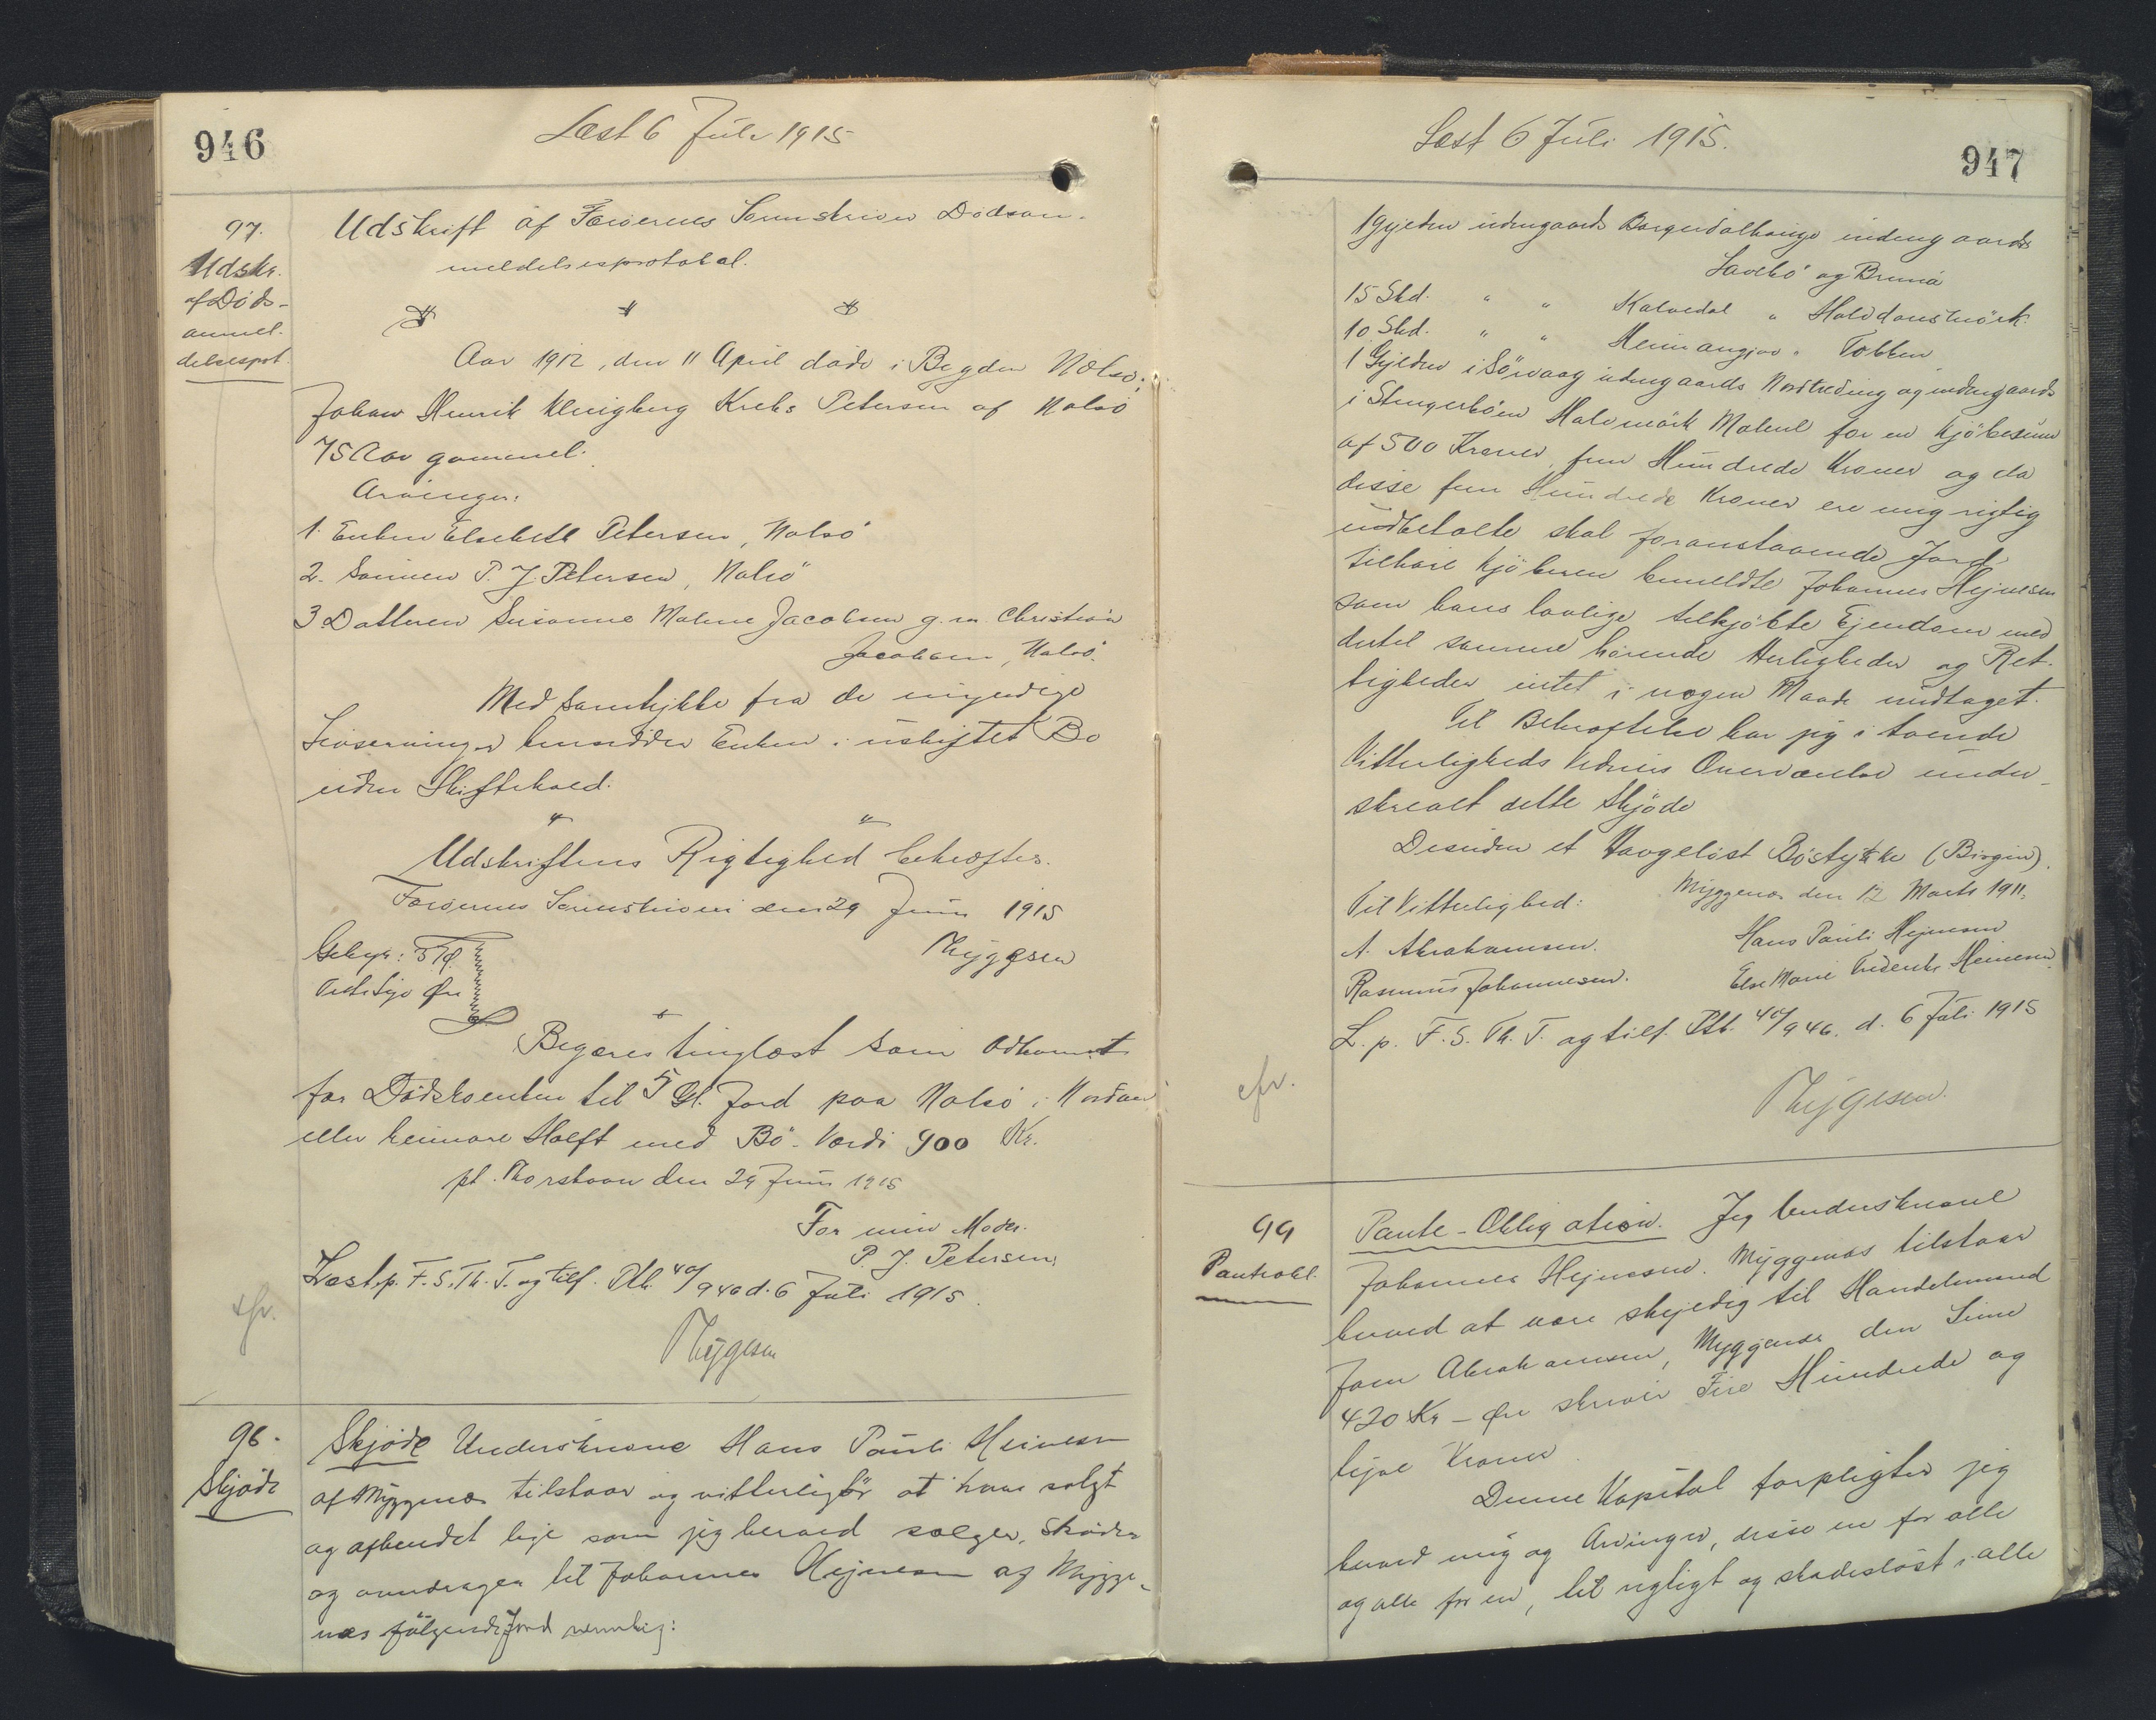 946
Læst 6 Juli 1915
97.
Udskr.
af Døds-
anmel-
delsesprot.
Udskrift af Færøernes Sorenskriver Dødsan-
meldelsesprotokol.
Aar 1912, den 11 April døde i Bygden Nolsø:
Johan Henrik Krebs Petersen af Nolsø
75 Aar gammel.
Arvinger:
1. Enken Elsebeth Petersen, Nolsø
2. Sønnen P. J. Petersen, Nolsø
3 Datteren Susanne Malene Jacobsen g. m. Christian
Jacobsen, Nolsø.
Med Samtykke fra de myndige
Livsarvinger hensidder Enken i uskiftet Bo
uden Skiftebrev.
Udskriftens Rigtighed bekræftes.
Færøernes Sorenskriveri den 29 Juni 1915
Thygesen
Gebyr:
Øre
Begæres tinglæst som Adkomst
for Dødsboenken til 5 Gl. Jord paa Nolsø i Nordari
eller heimare Halft med Bø. Værdi 900 Kr.
pt. Thorshavn den 29 Juni 1915
For min Moder.
P. J. Petersen.
Læst p. F. S. Th. T. og tilf. Ptb. 40/940 d. 6 Juli 1915.
Thygesen
cfr.
98.
Skjøde
Skjøde Underskrevne Hans Pauli Heinesen
af Myggenæs tilstaar og vitterliggör at have solgt
og afhendet lige som jeg herved sælger, skøder
og overdrager til Johannes Hejnesen af Mygge-
næs følgende Jord nemlig:
947
Læst 6 Juli 1915.
1 Gylden udengaards Borgardalhauge indengaards
Lavebö og Bruná
15 Skd. " " Kalvedal " Holsdansmörk.
10 Skd. " " Heimangjov " Tobben
1 Gylden i Sörvaag udengaards Nordtreding og indengaards
i Stengerbóen Halvmörk Malent for en Kjöbesum
af 500 Kroner, fem Hundrede Kroner og da
disse fem Hundrede Kroner ere mig rigtig
udbetalte skal foranstaaende Jord
tilhøre Kjöberen bemeldte Johannes Hejnesen
som hans lovlige tilkjöbte Ejendom med
dertil samme hörende Herligheder og Ret-
tigheder intet i nogen Maade undtaget.
Til Bekræftelse har jeg i tvende
Vitterligheds Vidners Overværelse under-
skrevet dette Skjöde
Desuden et Haugeløst Bøstykke (Birgin).
Myggenæs den 12 Marts 1911.
Til Vitterlighed:
A. Abrahamsen.
Hans Pauli Hejnesen
Rasmus Johannesen.
Else Marie Frederikke Heinesen.
L. p. F. S. Th. T. og tilf. Ptb. 40/946. d. 6 Juli 1915
Thygesen.
cfr.
99
Panteobl.
Pante-Obligation. Jeg Underskrevne
Johannes Hejnesen. Myggenæs tilstaar
herved at være skyldig til Handelsmand
Joen Abrahamsen, Myggenæs den Sum
420 Kr – Øre skriver Fire Hundrede og
tyve Kroner
Denne Kapital forpligter jeg
herved mig og Arvinger, disse en for alle
og alle for en, til rigtigt og skadesløst i alle